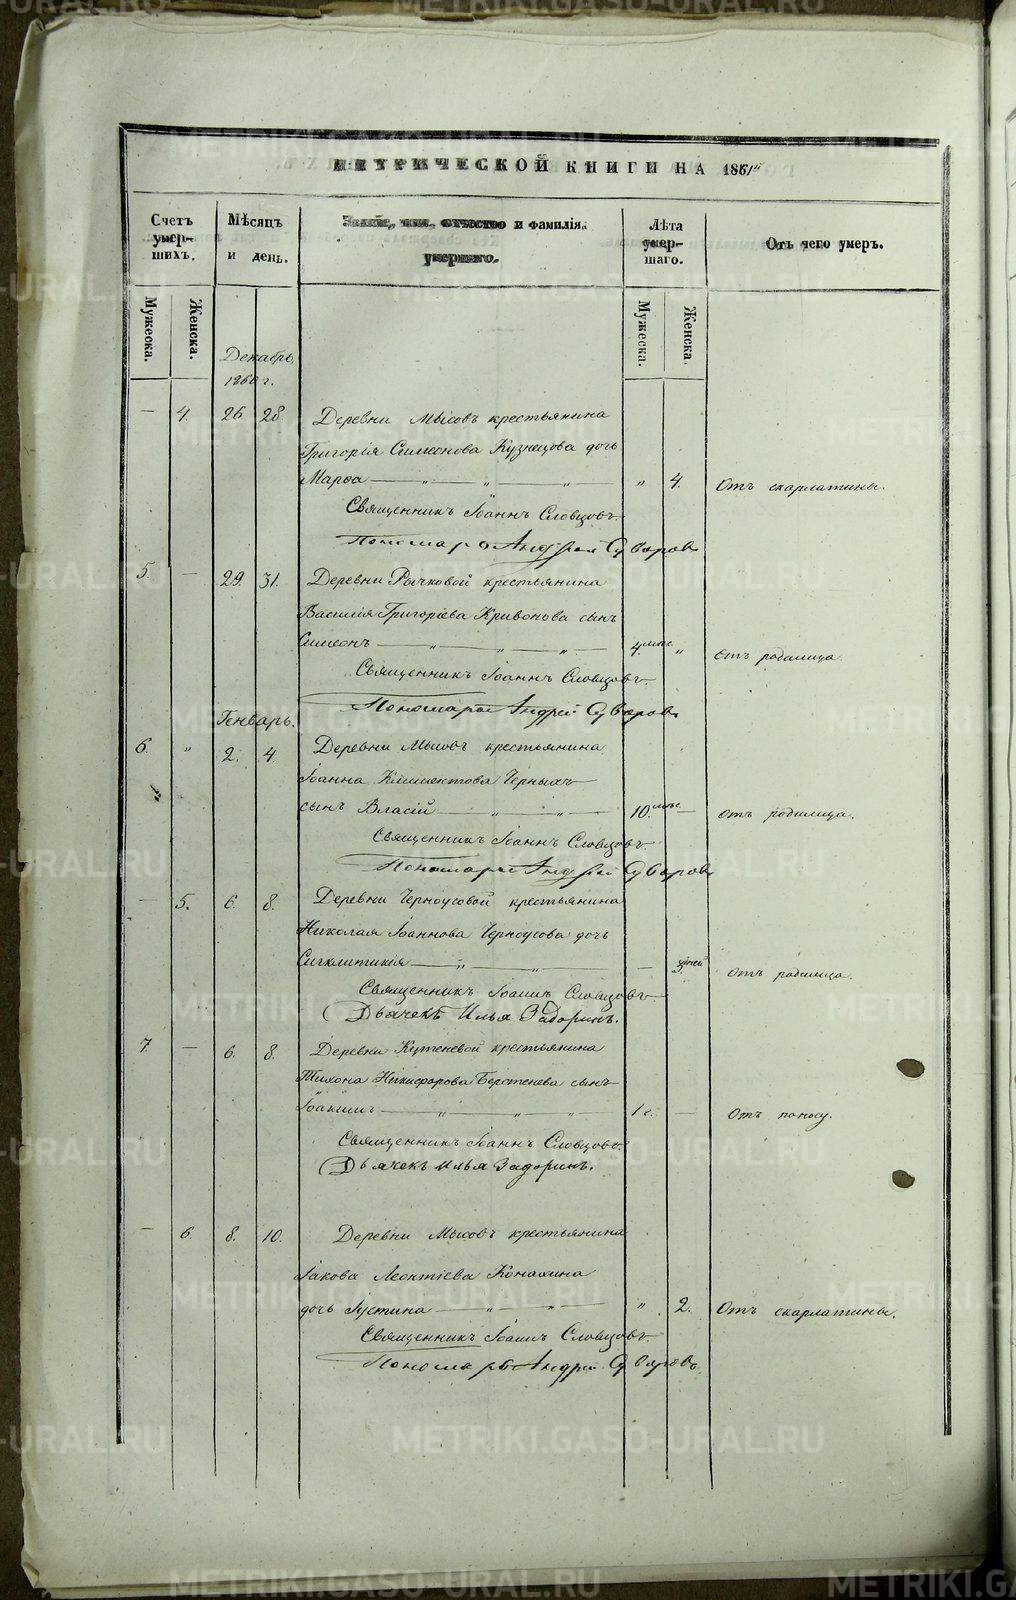 МЕТРИЧЕСКОЙ КНИГИ НА 1861й
Счетъ умер-шихъ.
Мѣсяцъ и день.
Званіе, имя, отчество и фамилія умершаго.
Лѣта умер-шаго.
Отъ чего умеръ.
Мужеска.
Женска.
Мужеска.
Женска.
Декабрь
1860 г.
— 4. 26 28 Деревни Мысовъ крестьянина
Григорія Симеонова Кузнецова дочь
Марѳа — „ — „ — „ — „ 4. Отъ скарлатины.
Священникъ Іоаннъ Словцовъ.
Пономарь Андрей Суворовъ
5. — 29 31. Деревни Рычковой крестьянина
Василія Григоріева Кривонова сынъ
Симеонъ — „ — „ — „ — 4. мѣс „ Отъ родимца.
Священникъ Іоаннъ Словцовъ.
Пономарь Андрей Суворовъ
Генварь.
6. „ 2. 4. Деревни Мысовъ крестьянина
Іоанна Климентова Черныхъ
сынъ Власій — „ — „ — 10. мѣс — Отъ родимца.
Священникъ Іоаннъ Словцовъ.
Пономарь Андрей Суворовъ
— 5. 6. 8. Деревни Черноусовой крестьянина
Николая Іоаннова Черноусова дочь
Сигклитикія — „ — „ — 3. дней Отъ родимца.
Священникъ Іоаннъ Словцовъ
Дьячекъ Илья Задоринъ.
7. — 6. 8. Деревни Кутеневой крестьянина
Тихона Никифорова Берстенева сынъ
Іоакимъ — „ — „ — „ 1 г. — Отъ поносу.
Священникъ Іоаннъ Словцовъ.
Дьячекъ Илья Задоринъ.
— 6. 8. 10. Деревни Мысовъ крестьянина
Іакова Леонтіева Конахина
дочь Іустина — „ — „ — „ 2. Отъ скарлатины.
Священникъ Іоаннъ Словцовъ.
Пономарь Андрей Суворовъ.
METRIKI.GASO-URAL.RU